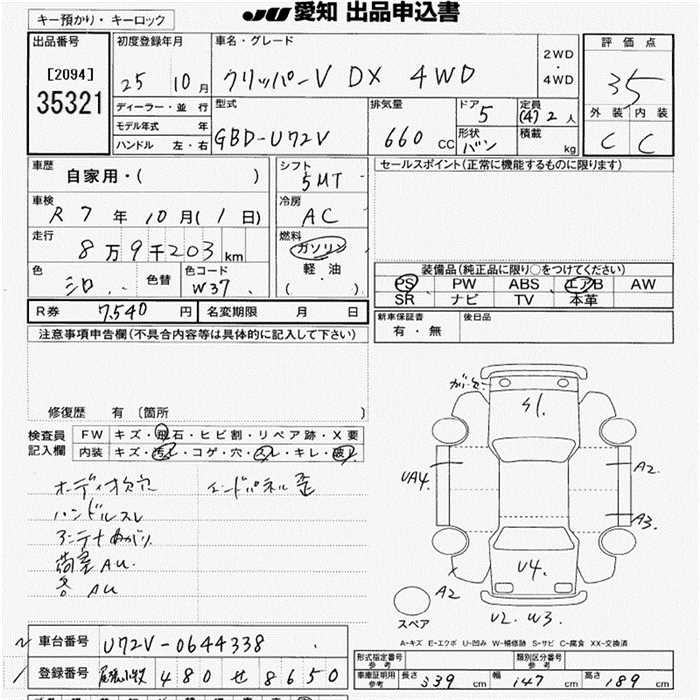 JU 愛知 出品申込書
キー預かり・キーロック
出品番号
[2094]
35321
初度登録年月
25 10月
車名・グレード
クリッパーV DX 4WD
2WD
・
4WD
評価点
35
外装 内装
C C
ディーラー・並行
モデル年式 年
ハンドル 左・右
型式
GBD-U72V
排気量
660 CC
ドア
5
形状
バン
定員
(4) 2 人
積載
kg
車歴
自家用・( )
車検
R 7 年 10 月 ( 1 日)
走行
8万9千203 km
色
シロ
色替
色コード
W37
シフト
5MT
冷房
AC
燃料
ガソリン
軽・油
( )
セールスポイント(正常に機能するものに限ります)
装備品(純正品に限り○をつけてください)
PS PW ABS エアB AW
SR ナビ TV 本革
R券 7,540 円 名変期限 月 日
新車保証書
有・無
後日品
注意事項申告欄(不具合内容等は具体的に記入して下さい)
修復歴 有〔箇所 〕
検査員
記入欄
FW キズ・飛石・ヒビ割・リペア跡・X要
内装 キズ・汚れ・コゲ・穴・スレ・キレ・破れ
オーディオ欠穴 エンドパネル歪
ハンドルスレ
アンテナ曲がり
荷室AU
AU
S1.
UA4.
A2.
A3.
U4.
A2
U2. W3.
スペア
A-キズ E-エクボ U-凹み W-補修跡 S-サビ C-腐食 XX-交換済
車台番号 U72V-0644338
登録番号 尾張小牧 480 せ 8650
形式指定番号
参考
類別区分番号
参考
車庫証明用
参考
長さ 339 cm 幅 147 cm 高さ 189 cm